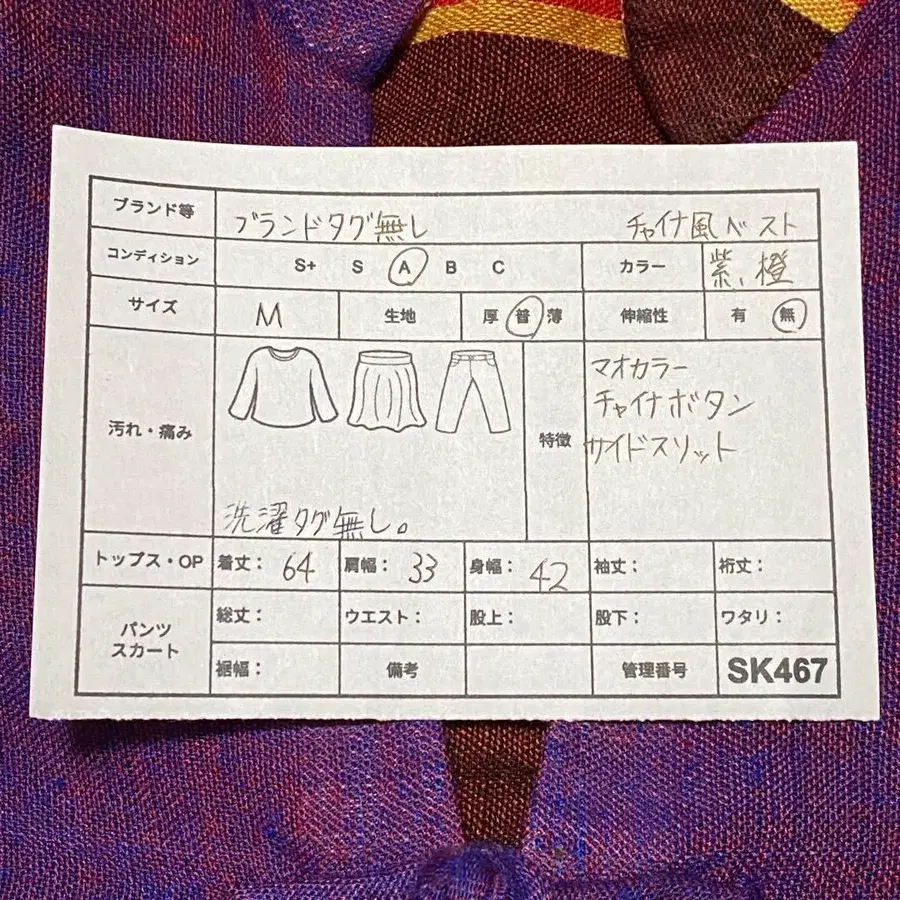 ブランド等 ブランドタグ無し チャイナ風ベスト
コンディション S+ S A B C カラー 紫、橙
サイズ M 生地 厚 普 薄 伸縮性 有 無
汚れ・痛み 洗濯タグ無し。 特徴
マオカラー
チャイナボタン
サイドスソット
トップス・OP 着丈： 64 肩幅： 33 身幅： 42 袖丈： 裄丈：
パンツ
スカート
総丈： ウエスト： 股上： 股下： ワタリ：
裾幅： 備考 管理番号 SK467